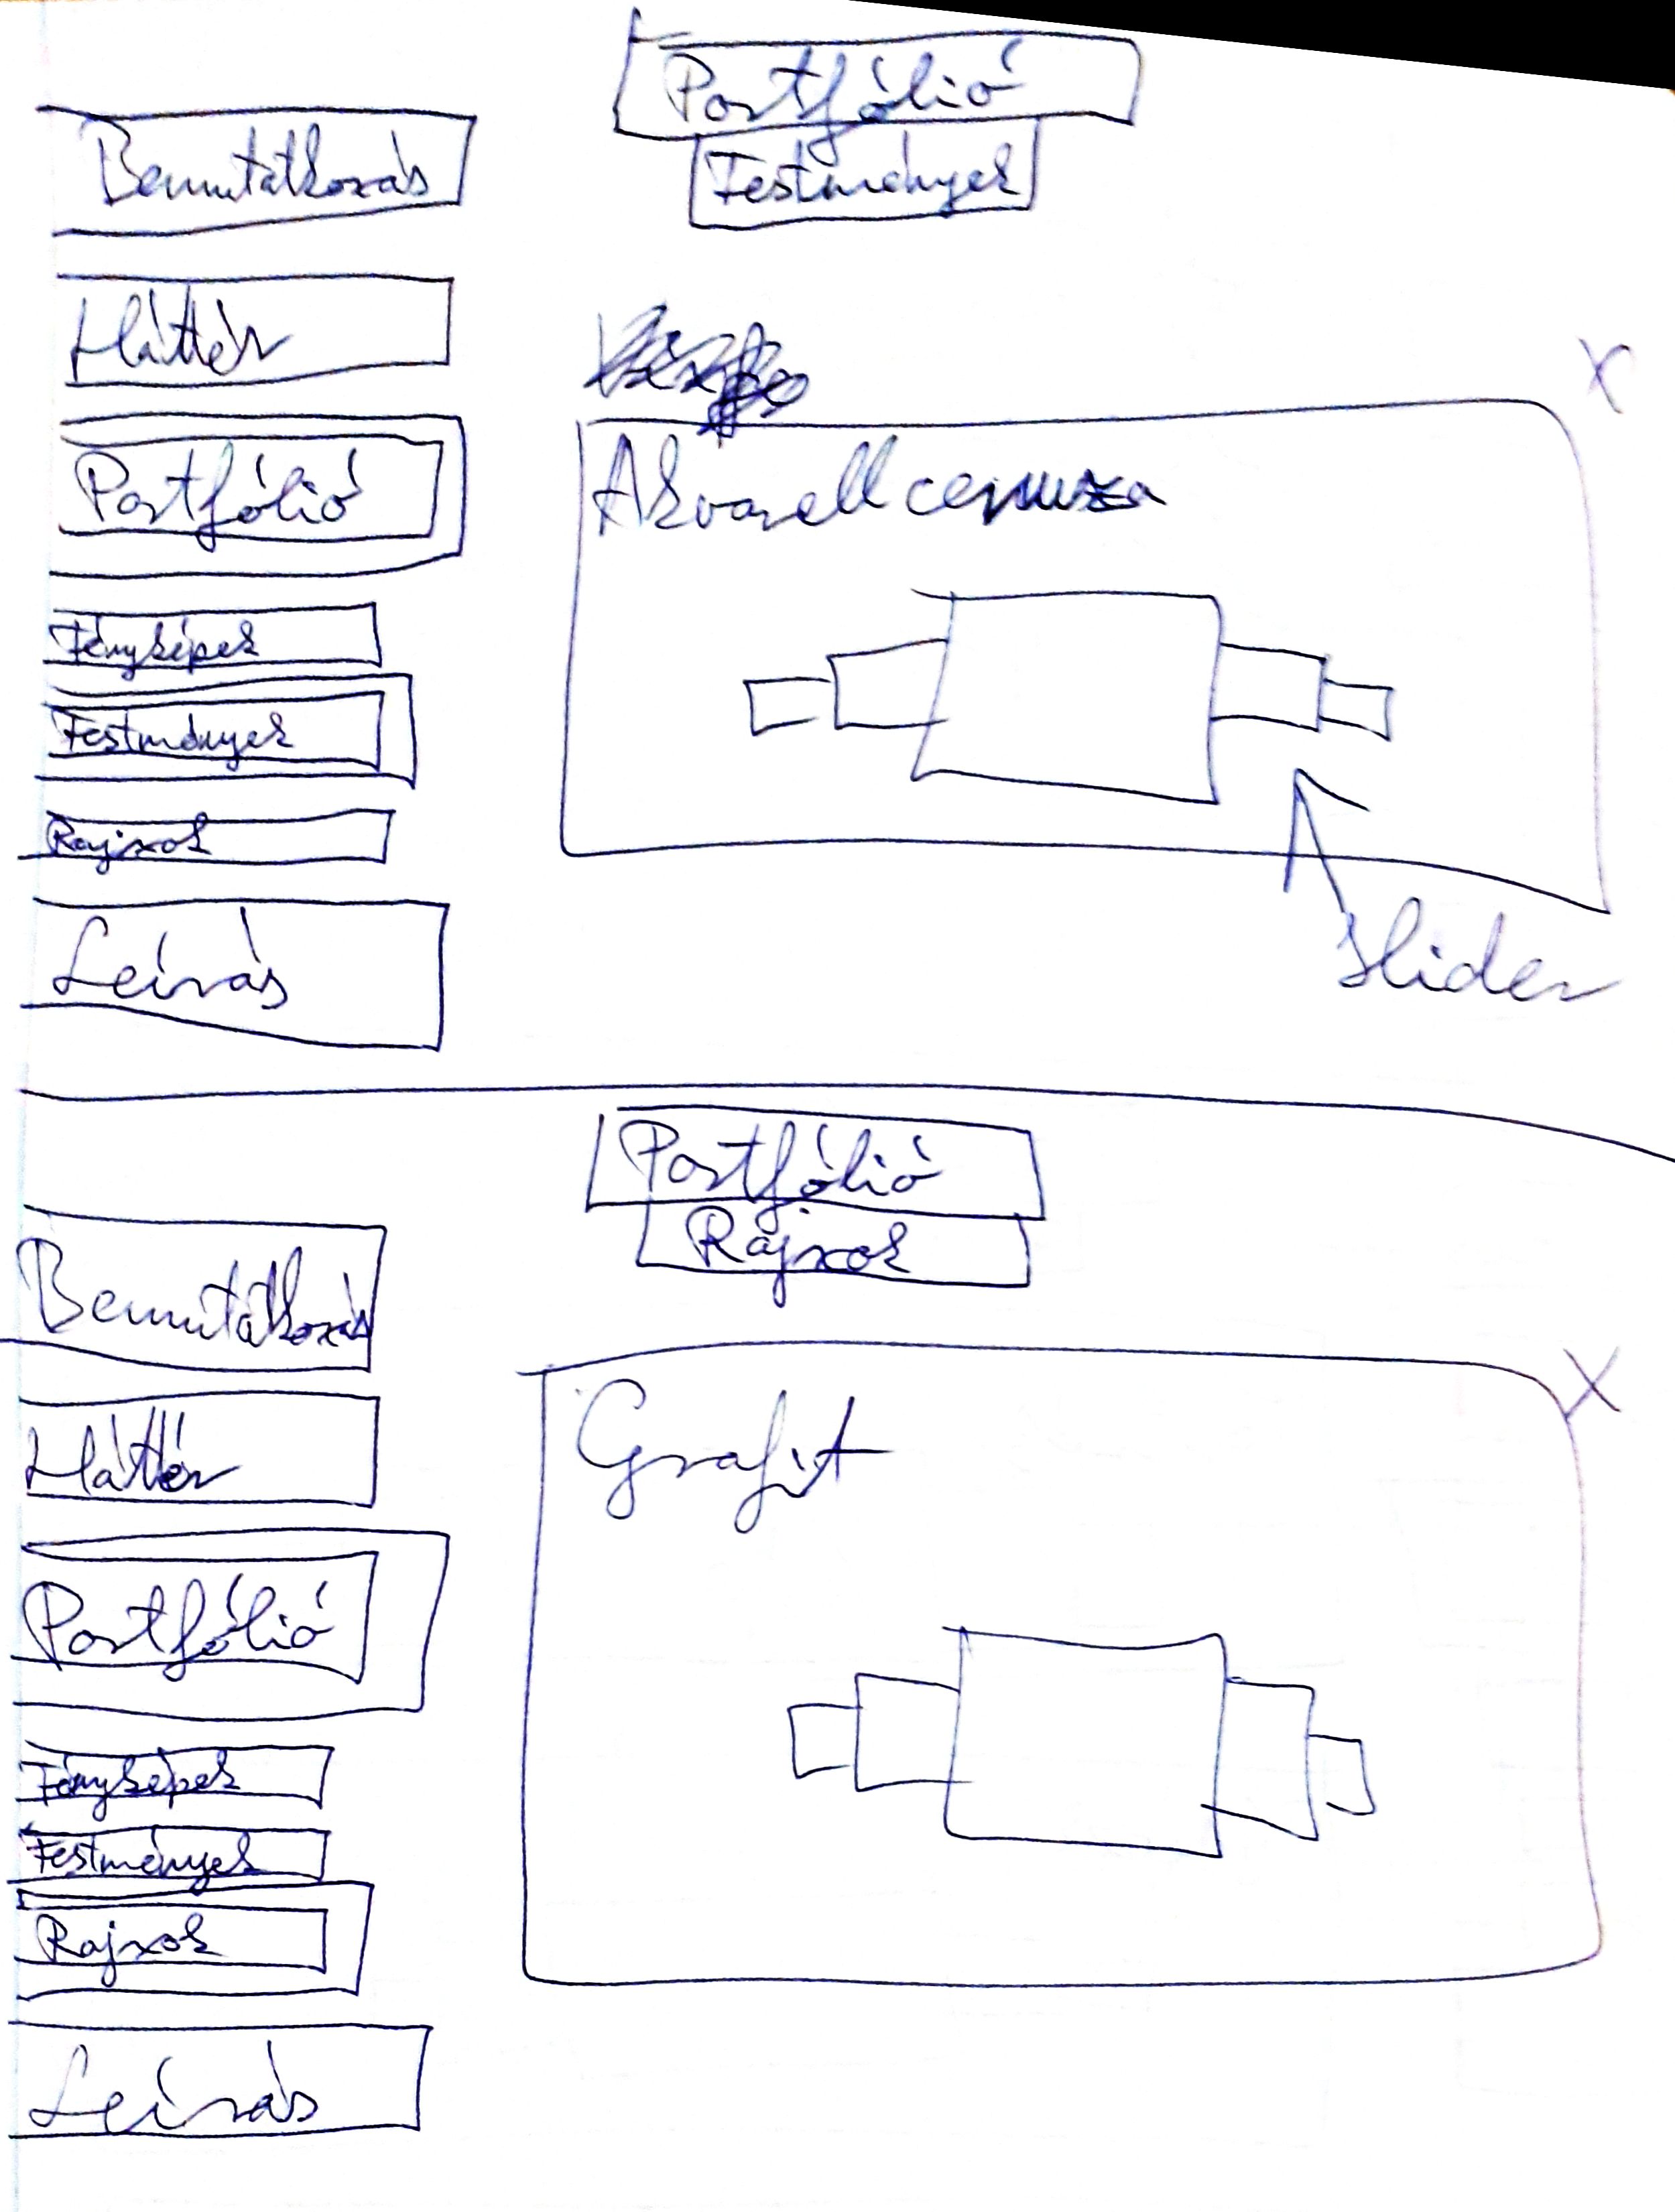 Portfólió
Festmények
Bemutatkozás
Háttér
Portfólió
Fényképek
Festmények
Rajzok
Leírás
X
Akvarell ceruza
Slider
Portfólió
Rajzok
Bemutatkozás
Háttér
Portfólió
Fényképek
Festmények
Rajzok
Leírás
X
Grafit